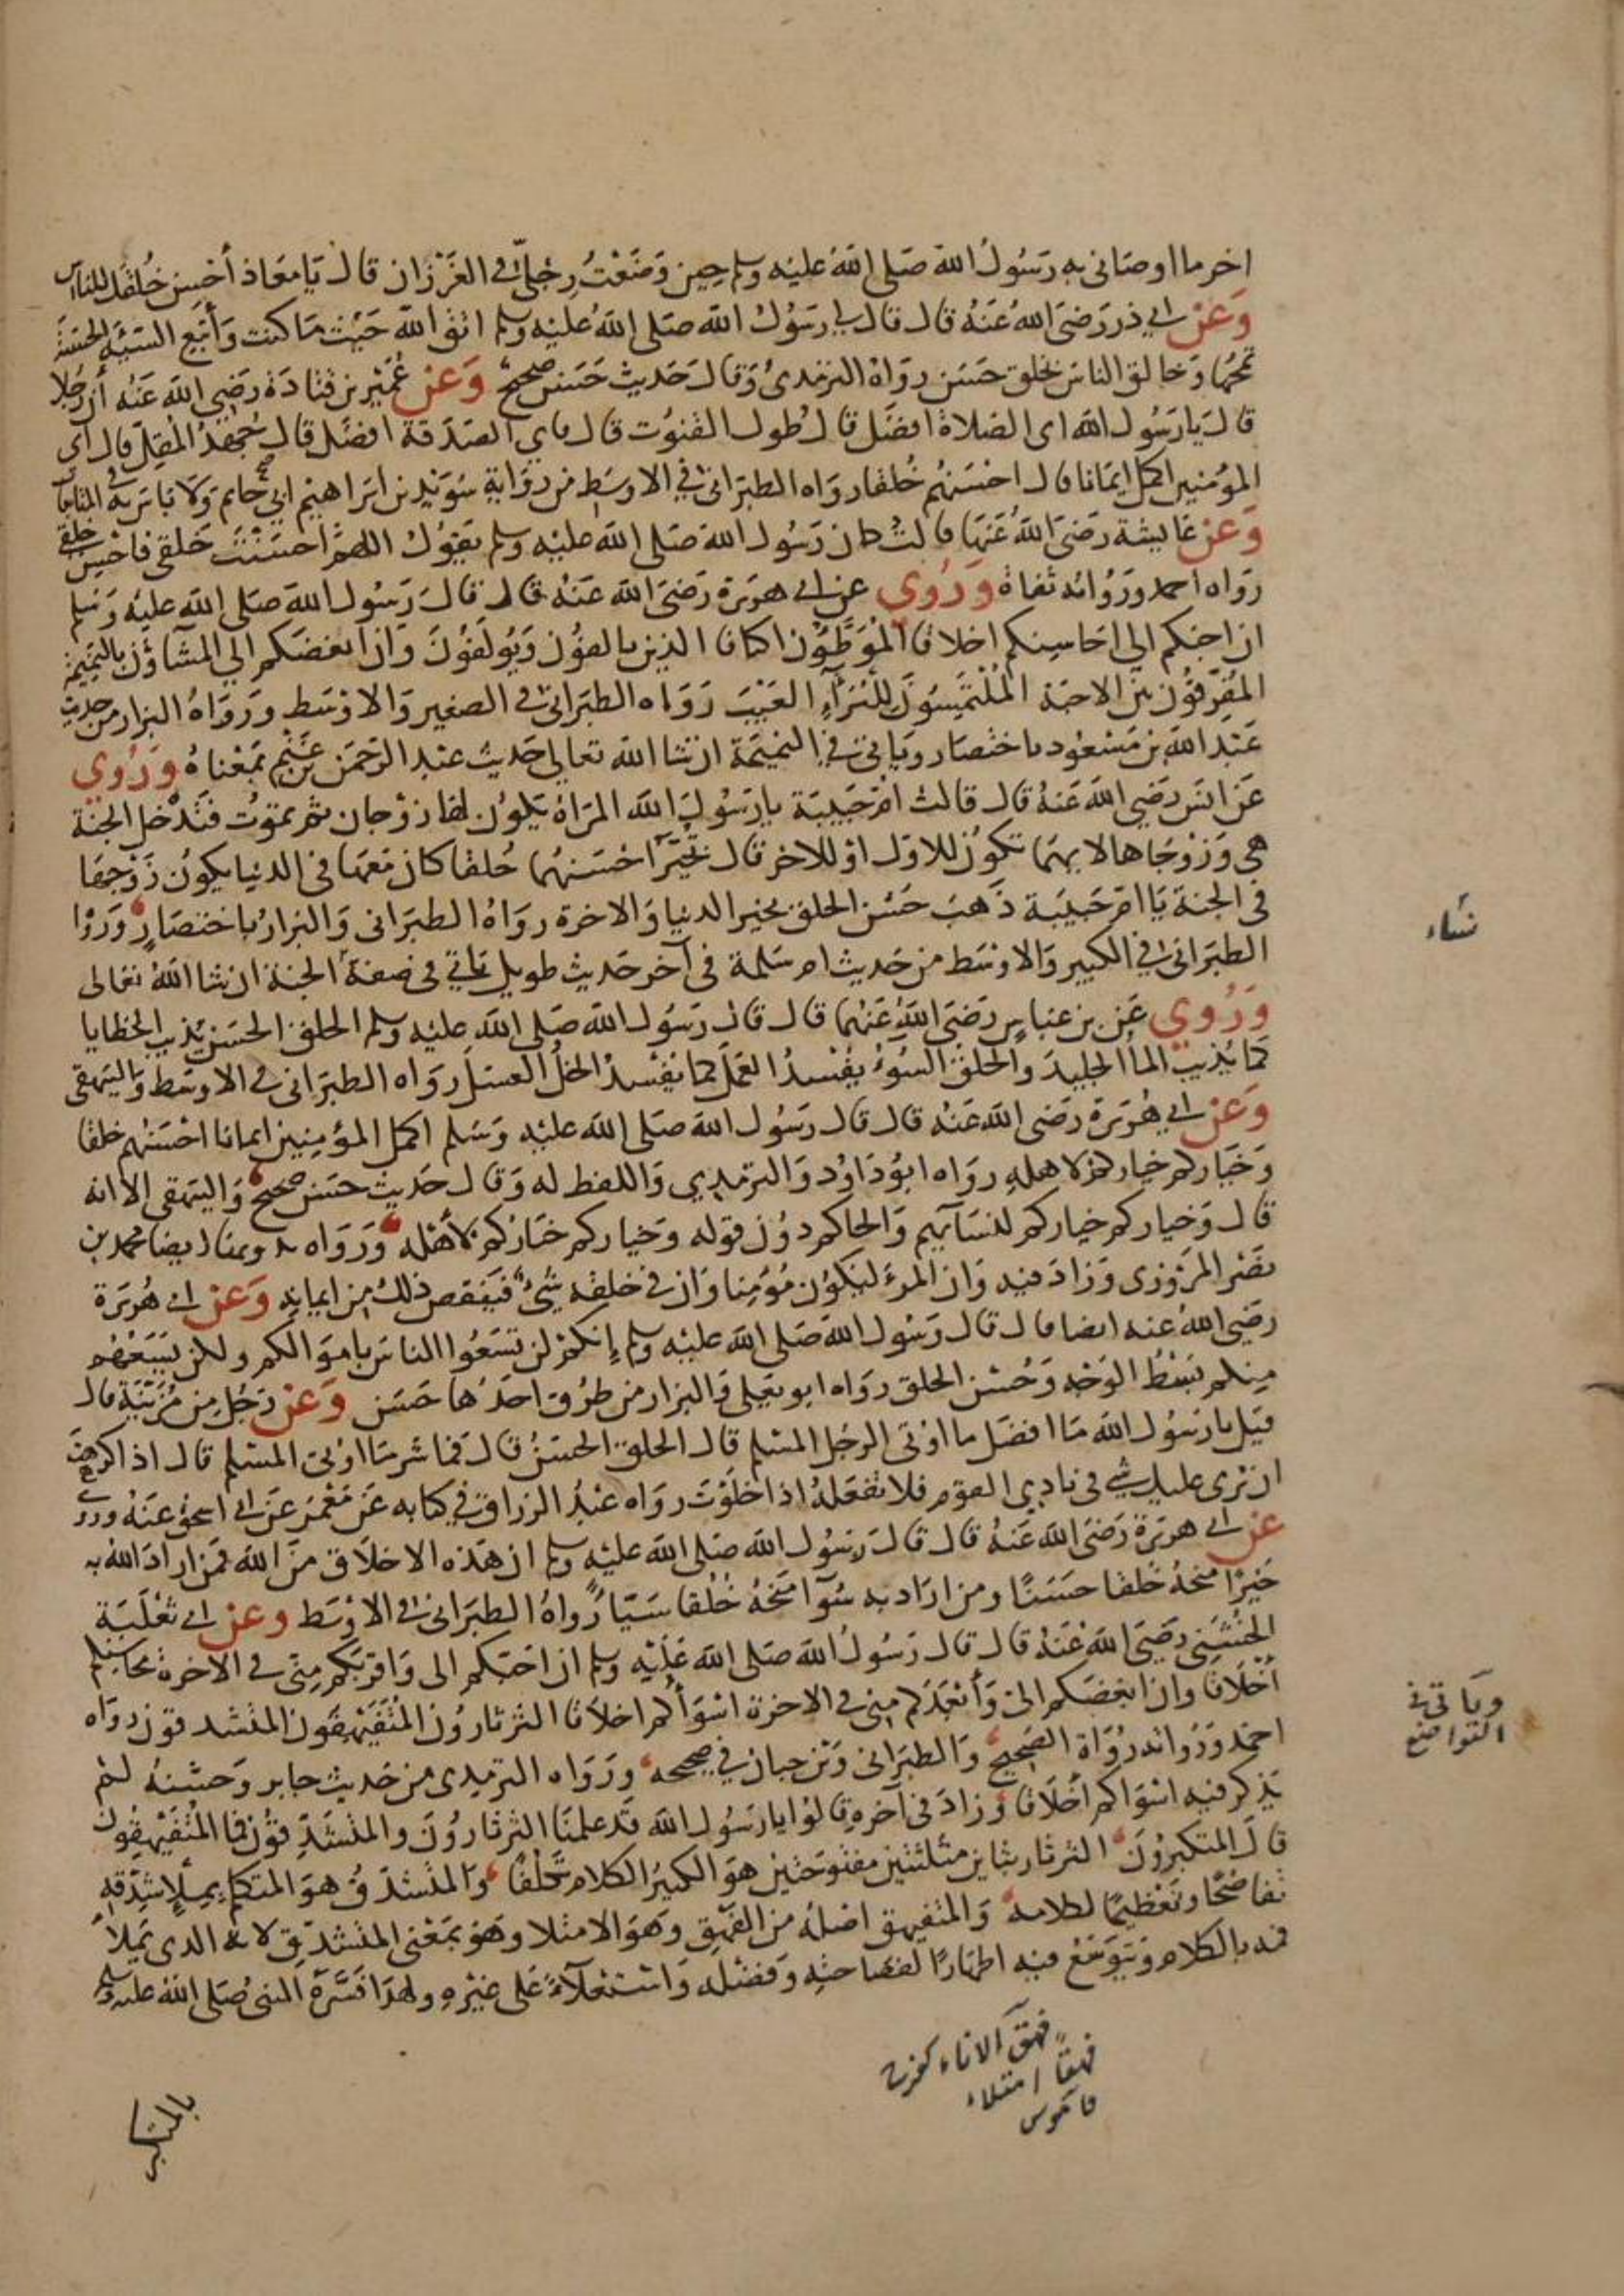 اخر ما اوصاني به رسول الله صلى الله عليه وسلم حين وضعت رجلي في الغرز ان قال يا معاذ أحسن خلقك للناس
وعن ابي ذر رضي الله عنه قال قال لي رسول الله صلى الله عليه وسلم اتق الله حيث ما كنت وأتبع السيئة الحسنة
تمحها وخالق الناس بخلق حسن رواه الترمذي وقال حديث حسن صحيح وعن عمير بن قتادة رضي الله عنه أن رجلا
قال يا رسول الله اي الصلاة افضل قال طول القنوت قال فاي الصدقة افضل قال جهد المقل قال أي
المؤمنين اكمل ايمانا قال احسنهم خلقا رواه الطبراني في الاوسط من رواية سويد بن ابراهيم ابي حاتم ولا باس به في المتابعات
وعن عايشة رضي الله عنها قالت كان رسول الله صلى الله عليه وسلم يقول اللهم احسنت خلقي فاحسن خلقي
رواه احمد ورواته ثقاة وروي عن ابي هريرة رضي الله عنه قال قال رسول الله صلى الله عليه وسلم
ان احبكم الي احاسنكم اخلاقا الموطؤن اكنافا الذين يالفون ويولفون وان ابغضكم الي المشاؤن بالنميمة
المفرقون بين الاحبة الملتمسون للبرآء العيب رواه الطبراني في الصغير والاوسط ورواه البزار من حديث
عبد الله بن مسعود باختصار وياتي في النميمة ان شا الله تعالى حديث عبد الرحمن بن غنم بمعناه وروي
عن انس رضي الله عنه قال قالت ام حبيبة يا رسول الله المراة يكون لها زوجان ثم تموت فتدخل الجنة
هي وزوجاها لايهما تكون للاول او للاخر قال تخير احسنهما خلقا كان معها في الدنيا يكون زوجها
في الجنة يا ام حبيبة ذهب حسن الخلق بخير الدنيا والاخرة رواه الطبراني والبزار باختصار ورواه
الطبراني في الكبير والاوسط من حديث ام سلمة في آخر حديث طويل ياتي في صفة الجنة ان شا الله تعالى
وروي عن بن عباس رضي الله عنهما قال قال رسول الله صلى الله عليه وسلم الخلق الحسن يذيب الخطايا
كما يذيب الما الجليد والخلق السوء يفسد العمل كما يفسد الخل العسل رواه الطبراني في الاوسط والبيهقي
وعن ابي هريرة رضي الله عنه قال قال رسول الله صلى الله عليه وسلم اكمل المؤمنين ايمانا احسنهم خلقا
وخياركم خياركم لاهله رواه ابو داود والترمذي واللفظ له وقال حديث حسن صحيح والبيهقي الا انه
قال وخياركم خياركم لنسآيهم والحاكم دون قوله وخياركم خياركم لأهله ورواه ايضا محمد بن
نصر المروزي وزاد فيه وان المرء ليكون مؤمنا وان في خلقه شئ فينقص ذلك من ايمانه وعن ابي هريرة
رضي الله عنه ايضا قال قال رسول الله صلى الله عليه وسلم إنكم لن تسعوا الناس باموالكم ولكن يسعهم
منكم بسط الوجه وحسن الخلق رواه ابو يعلى والبزار من طرق احدها حسن وعن رجل من مزينة قال
قيل يا رسول الله ما افضل ما اوتي الرجل المسلم قال الخلق الحسن قال فما شر ما اوتي المسلم قال اذا كرهت
ان يرى عليك شي في نادي القوم فلا تفعله اذا خلوت رواه عبد الرزاق في كتابه عن معمر عن ابي اسحق عنه وروي
عن ابي هريرة رضي الله عنه قال قال رسول الله صلى الله عليه وسلم ان هذه الاخلاق من الله فمن اراد الله به
خيرا منحه خلقا حسنا ومن اراد به سوآ منحه خلقا سيئا رواه الطبراني في الاوسط وعن ابي ثعلبة
الخشني رضي الله عنه قال قال رسول الله صلى الله عليه وسلم ان احبكم الي واقربكم مني في الاخرة محاسنكم
أخلاقا وان ابغضكم الي وأبعدكم مني في الاخرة اسوأكم اخلاقا الثرثارون المتفيهقون المتشدقون رواه
احمد ورواته رواة الصحيح والطبراني وبن حبان في صحيحه ورواه الترمذي من حديث جابر وحسنه لم
يذكر فيه اسواكم أخلاقا وزاد في آخره قالوا يا رسول الله قد علمنا الثرثارون والمتشدقون فما المتفيهقون
قال المتكبرون الثرثار بثاين مثلثتين مفتوحتين هو الكثير الكلام تكلفا والمتشدق هو المتكلم بملإ شدقه
تفاصحا وتعظيما لكلامه والمتفيهق اصله من الفهق وهو الامتلا وهو بمعنى المتشدق لانه الذي يملأ
فمه بالكلام ويتوسع فيه اظهارا لفصاحته وفضله واستعلآء على غيره ولهذا فسره النبي صلى الله عليه وسلم
بالمتكبر
شاء
وياتي في
التواضع
فهق الاناء كفرح
فهقا امتلاء
قاموس